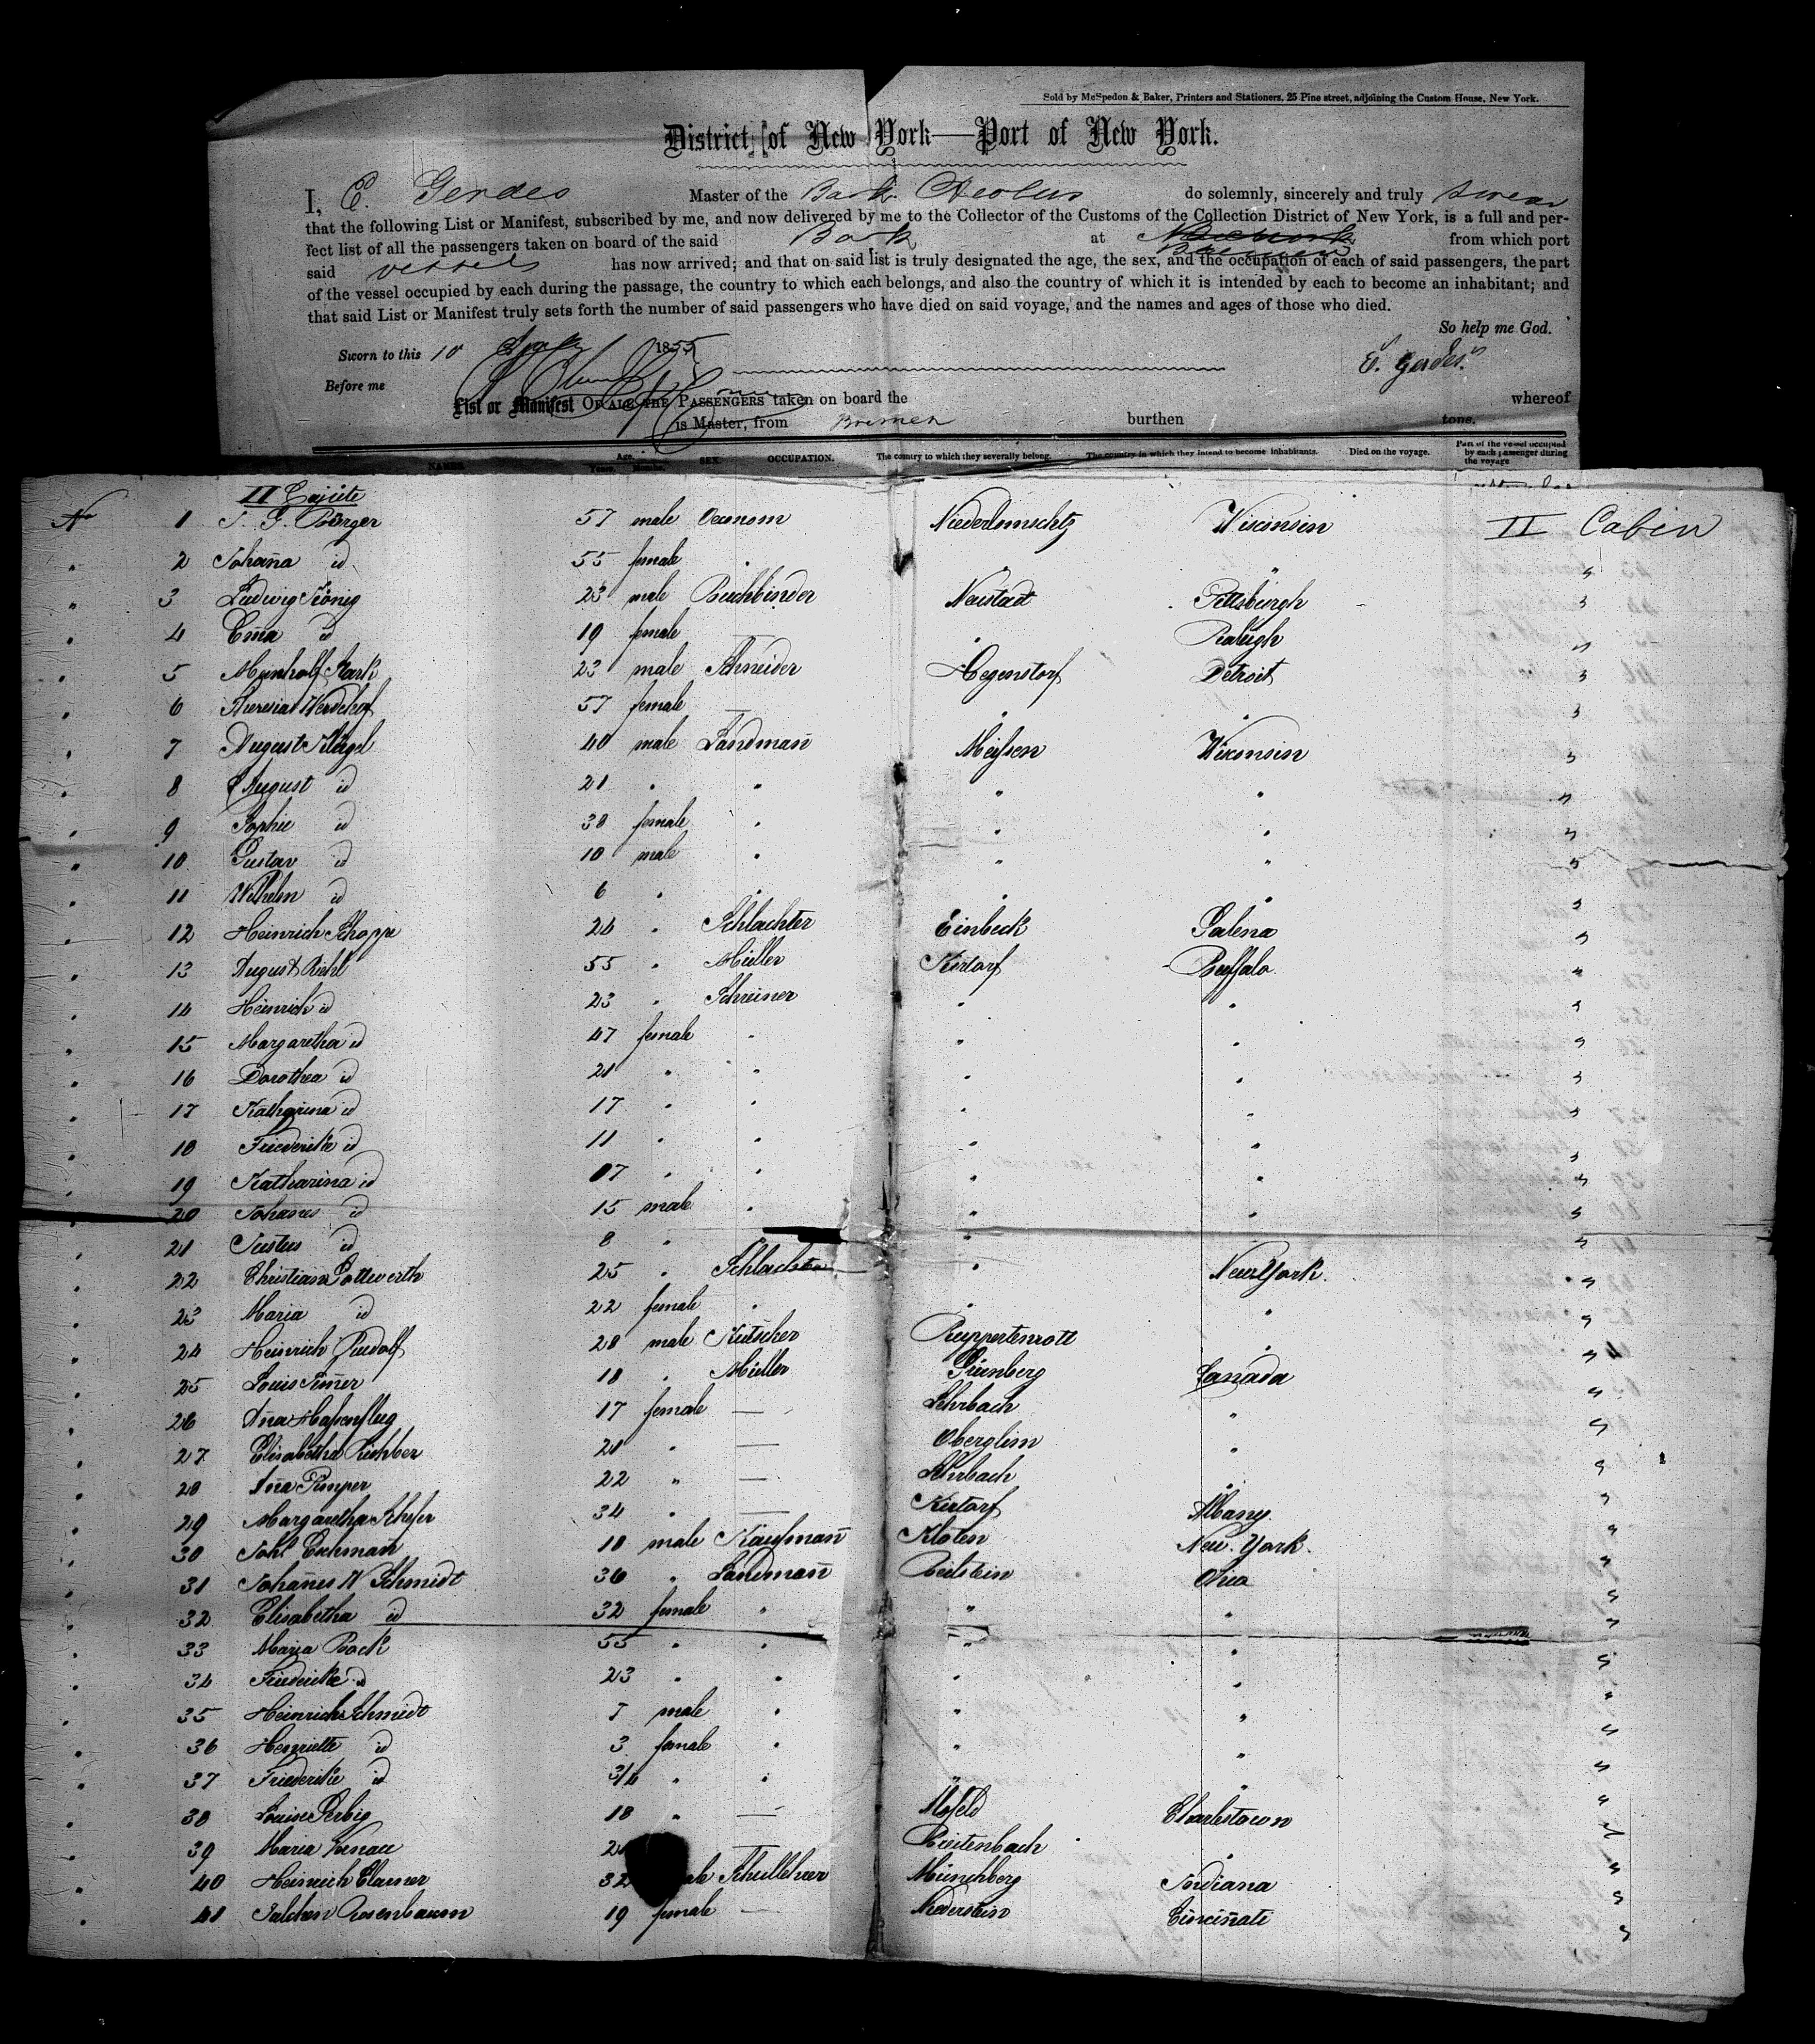 Sold by McSpedon & Baker, Printers and Stationers, 25 Pine street, adjoining the Custom House, New York.
District of New York—Port of New York.
I, E. Gerdes Master of the Bark Aeolus do solemnly, sincerely and truly swear
that the following List or Manifest, subscribed by me, and now delivered by me to the Collector of the Customs of the Collection District of New York, is a full and per-
fect list of all the passengers taken on board of the said Bark at Bremen from which port
said vessels has now arrived; and that on said list is truly designated the age, the sex, and the occupation of each of said passengers, the part
of the vessel occupied by each during the passage, the country to which each belongs, and also the country of which it is intended by each to become an inhabitant; and
that said List or Manifest truly sets forth the number of said passengers who have died on said voyage, and the names and ages of those who died.
So help me God.
Sworn to this 10 1855
E. Gerdes
Before me
List or Manifest OF ALL THE PASSENGERS taken on board the whereof
is Master, from Bremen burthen tons.
NAMES. Age. Years. Months. SEX. OCCUPATION. The country to which they severally belong. The country in which they intend to become inhabitants. Died on the voyage. Part of the vessel occupied by each passenger during the voyage
II Cajüte
No 1 Bürger 57 male Oeconom Wisconsin II Cabin
" 2 Johaña id 55 female " " "
" 3 Ludwig König 23 male Buchbinder Neustadt Pittsburgh "
" 4 Em̄a id 19 female — " Raleigh "
" 5 Stark 23 male Schneider Hegenstorf Detroit "
" 6 Theresia 57 female — " " "
" 7 August Flügel 40 male Landmañ Meißen Wisconsin "
" 8 August id 21 " " " " "
" 9 Sophie id 38 female " " " "
" 10 Gustav id 10 male " " " "
" 11 Wilhelm id 6 " " " " "
" 12 Heinrich Schoppe 24 " Schlachter Einbeck Galena "
" 13 August Riehl 55 " Müller Kirtorf Buffalo "
" 14 Heinrich id 23 " Schreiner " " "
" 15 Margaretha id 47 female " " " "
" 16 Dorothea id 21 " " " " "
" 17 Katharina id 17 " " " " "
" 18 Friederike id 11 " " " " "
" 19 Katharina id 07 " " " " "
" 20 Johañes id 15 male " " " "
" 21 Justus id 8 " " " "
" 22 Christian 25 " Schlachter " New York "
" 23 Maria id 22 female " " " "
" 24 Heinrich Rudolf 28 male Kutscher Ruppertenrott " "
" 25 Louis 18 " Müller Grünberg Canada "
" 26 Aña Haßenflug 17 female — Lehrbach " "
" 27 Elisabetha 21 " — " "
" 28 Aña 22 " — Lehrbach " "
" 29 Margaretha 34 " — Kirtorf Albany "
" 30 Joh. 18 male Kaufmañ New York "
" 31 Johañes W Schmidt 36 " Landmañ Beilstein "
" 32 Elisabetha id 32 female " " " "
" 33 Maria Bock 55 " " " " "
" 34 Friederike id 23 " " " " "
" 35 Heinrich Schmidt 7 male " " " "
" 36 Henriette id 3 female " " " "
" 37 Friederike id 3/4 " " " " "
" 38 Louise 18 " — Alsfeld Charlestown "
" 39 Maria — " "
" 40 Heinrich 32 Schullehrer Münchberg Indiana "
" 41 Rosenbaum 19 female — Niederstein Cincinati "